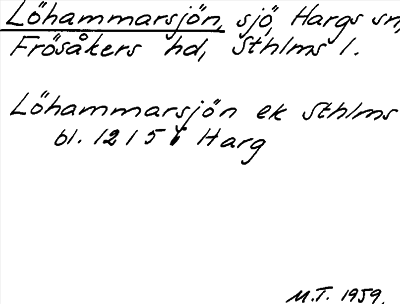 Löhammarsjön, sjö, Hargs sn,
Frösåkers hd, Sthlms l.
Löhammarsjön ek Sthlms
bl. 1215 Harg
M.T. 1959.